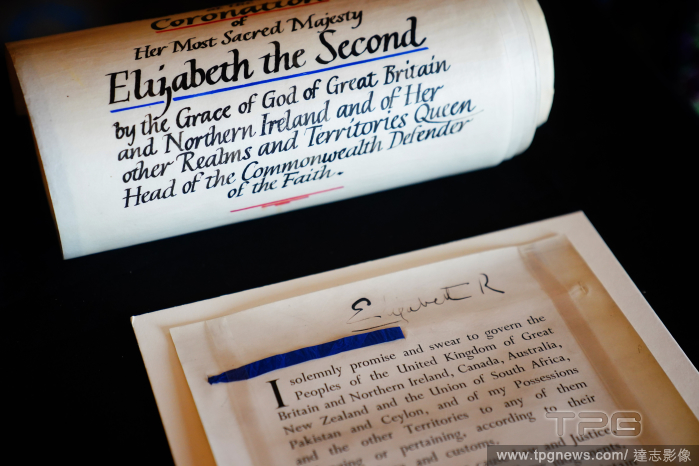 Coronation
Her Most Sacred Majesty
Elizabeth the Second
by the Grace of God of Great Britain
and Northern Ireland and of Her
other Realms and Territories Queen
Head of the Commonwealth Defender
of the Faith.
Elizabeth R
I solemnly promise and swear to govern the
Peoples of the United Kingdom of Great
Britain and Northern Ireland, Canada, Australia,
New Zealand and the Union of South Africa,
Pakistan and Ceylon, and of my Possessions
and the other Territories to any of them
or pertaining, according to their
and customs.
and Justice,
TPG
www.tpgnews.com/ 達志影像